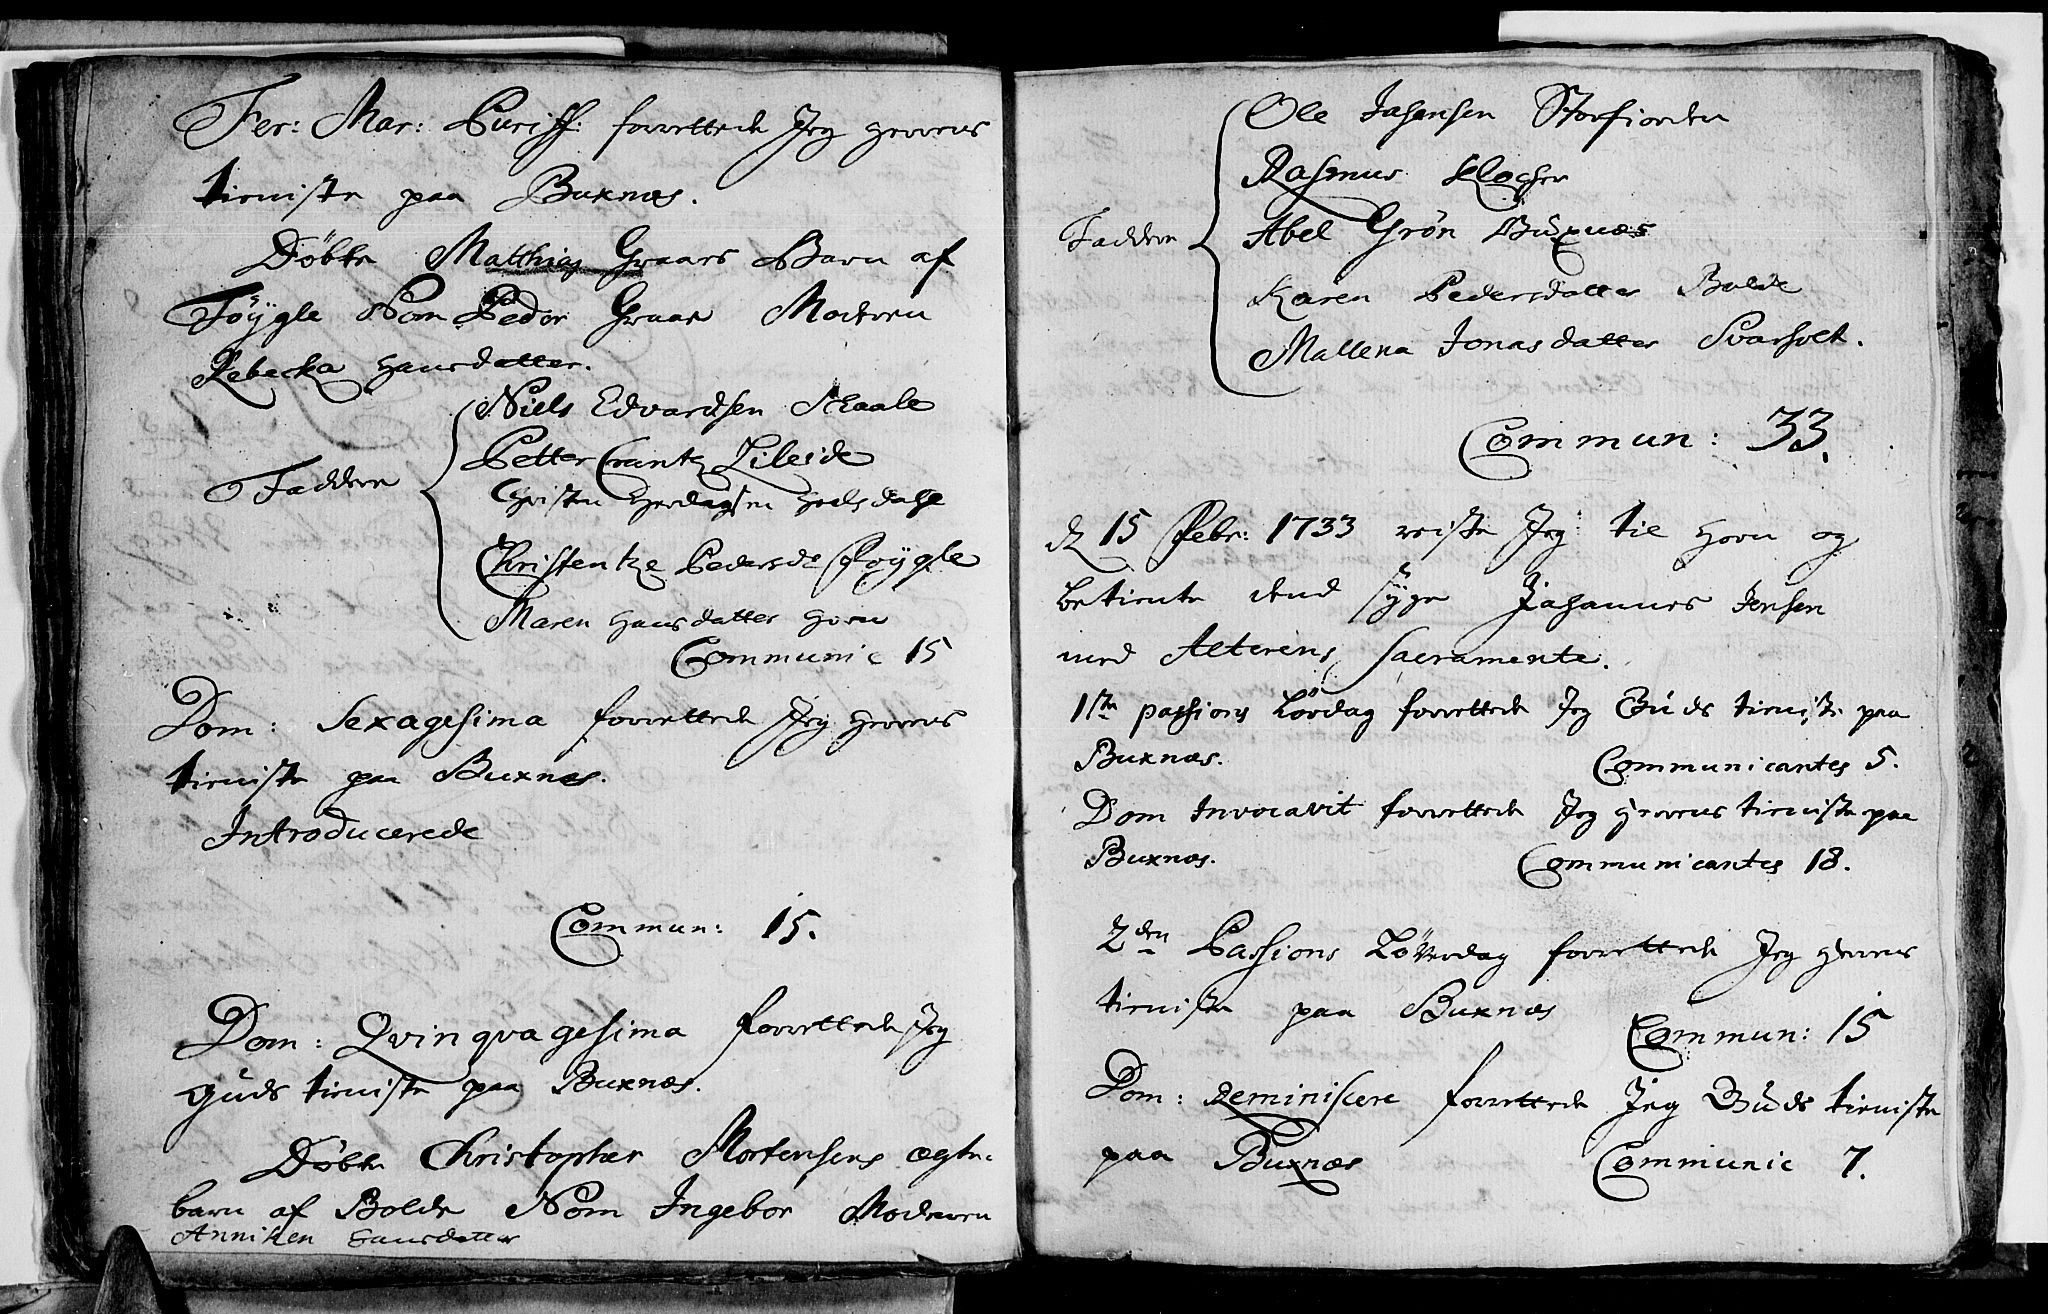 Fer: Mar: Puriff: forrettede Jeg Herrens
tieniste paa Buxnæs.
Døbte Matthias Graaes Barn af
Føygle Nom Peder Graae Moderen
Rebecka Hansdatter.
Niels Edvardsen Skaale
Petter Crantz Lileide
Faddere
Christen
Christentze Pedersd: Føygle
Maren Hansdatter Horn
Communic 15
Dom: Sexagesima forrettede Jeg Herrens
tieniste paa Buxnæs.
Introducerede
Commun: 15.
Dom: Qvinqvagesima forrettede Jeg
Guds tieniste paa Buxnæs.
Døbte Christopher Mortensens ægte
barn af Bolde Nom Ingebor Moderen
Anniken Hansdatter
Ole Jahansen Storfiorden
Rasmus Klocher
Faddere Abel Grön Buxnæs
Karen Pedersdatter Bolde
Mallena Jonasdatter Svarholt.
Commun: 33.
d 15 Febr: 1733 reiste Jeg til Horn og
betiente dend syge Johannes Jensen
med Alterens Sacramente.
1ste passions Lövdag forrettede Jeg Guds tieniste paa
Buxnæs. Communicantes 5.
Dom Invocavit forrettede Jeg Herrens tieniste paa
Buxnæs. Communicantes 18.
2den Passions Löverdag forrettede Jeg Herrens
tieniste paa Buxnæs
Commun: 15
Dom: Reminiscere forrettede Jeg Guds tieniste
paa Buxnæs Communic 7.